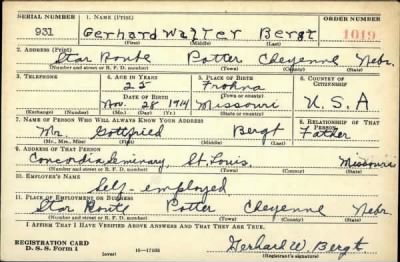 SERIAL NUMBER 1. NAME (Print) ORDER NUMBER
931 Gerhard Walter Bergt 1019
(First) (Middle) (Last)
2. ADDRESS (Print)
Star Route Potter Cheyenne Nebr.
(Number and street or R. F. D. number) (Town) (County) (State)
3. TELEPHONE 4. AGE IN YEARS 5. PLACE OF BIRTH 6. COUNTRY OF CITIZENSHIP
25 Frohna
DATE OF BIRTH (Town or county)
Nov. 28 1914 Missouri U.S.A
(Exchange) (Number) (Mo.) (Day) (Yr.) (State or country)
7. NAME OF PERSON WHO WILL ALWAYS KNOW YOUR ADDRESS 8. RELATIONSHIP OF THAT PERSON
Mr. Gottfried Bergt Father
(Mr., Mrs., Miss) (First) (Middle) (Last)
9. ADDRESS OF THAT PERSON
Concordia Seminary, St. Louis, Missouri
(Number and street or R. F. D. number) (Town) (County) (State)
10. EMPLOYER'S NAME
Self-employed
11. PLACE OF EMPLOYMENT OR BUSINESS
Star Route Potter Cheyenne Nebr.
(Number and street or R. F. D. number) (Town) (County) (State)
I AFFIRM THAT I HAVE VERIFIED ABOVE ANSWERS AND THAT THEY ARE TRUE.
REGISTRATION CARD
D. S. S. Form 1 (over) Gerhard W. Bergt
(Registrant's signature)